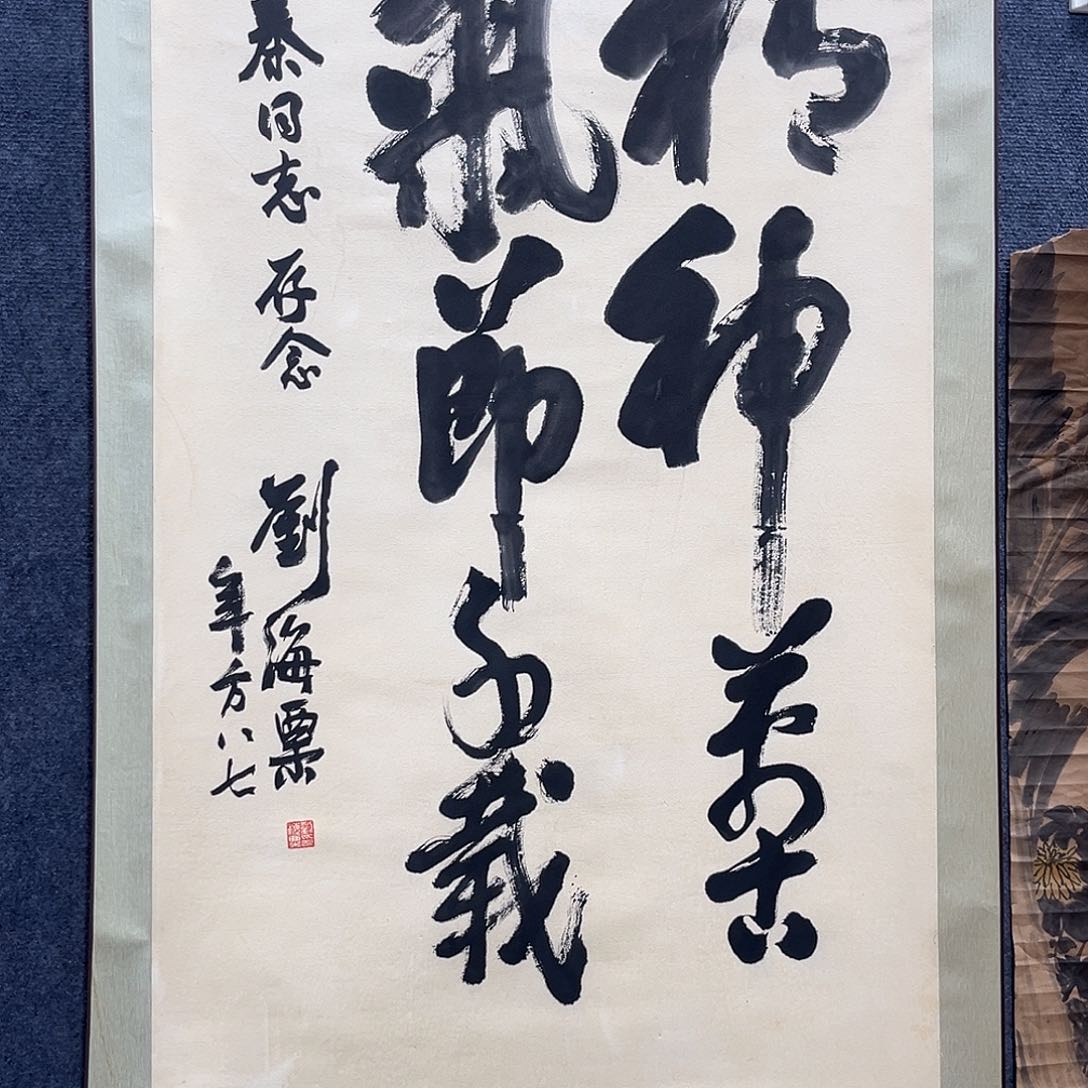 精神萬古
氣節千載
泰同志存念
劉海粟
年方八七